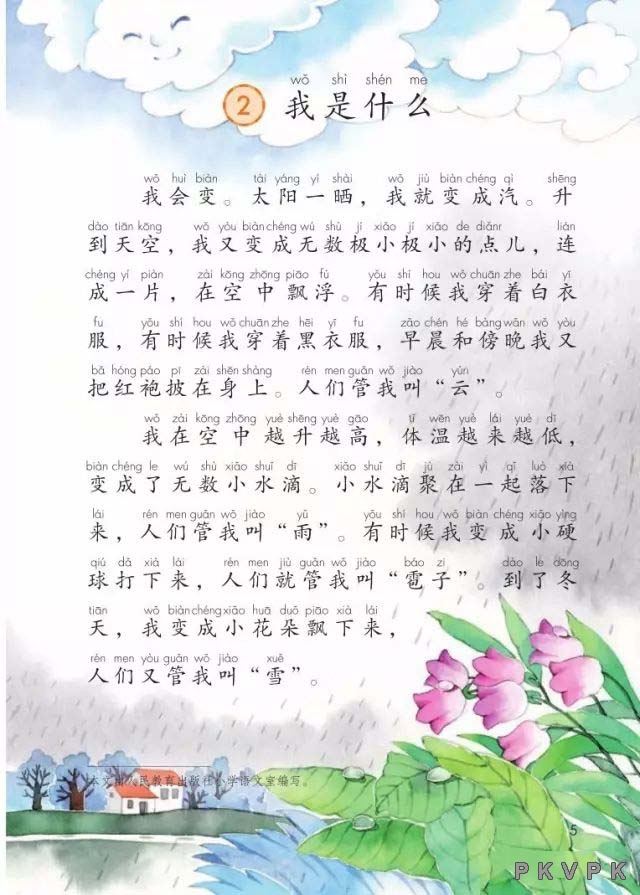 wǒ shì shén me
2 我是什么
wǒ huì biàn tài yáng yí shài wǒ jiù biàn chéng qì shēng
我会变。太阳一晒，我就变成汽。升
dào tiān kōng wǒ yòu biàn chéng wú shù jí xiǎo jí xiǎo de diǎnr lián
到天空，我又变成无数极小极小的点儿，连
chéng yí piàn zài kōng zhōng piāo fú yǒu shí hou wǒ chuān zhe bái yī
成一片，在空中飘浮。有时候我穿着白衣
fu yǒu shí hou wǒ chuān zhe hēi yī fu zǎo chén hé bàng wǎn wǒ yòu
服，有时候我穿着黑衣服，早晨和傍晚我又
bǎ hóng páo pī zài shēn shàng rén men guǎn wǒ jiào yún
把红袍披在身上。人们管我叫“云”。
wǒ zài kōng zhōng yuè shēng yuè gāo tǐ wēn yuè lái yuè dī
我在空中越升越高，体温越来越低，
biàn chéng le wú shù xiǎo shuǐ dī xiǎo shuǐ dī jù zài yì qǐ luò xià
变成了无数小水滴。小水滴聚在一起落下
lái rén men guǎn wǒ jiào yǔ yǒu shí hou wǒ biàn chéng xiǎo yìng
来，人们管我叫“雨”。有时候我变成小硬
qiú dǎ xià lái rén men jiù guǎn wǒ jiào báo zi dào le dōng
球打下来，人们就管我叫“雹子”。到了冬
tiān wǒ biàn chéng xiǎo huā duǒ piāo xià lái
天，我变成小花朵飘下来，
rén men yòu guǎn wǒ jiào xuě
人们又管我叫“雪”。
本文由人民教育出版社小学语文室编写。
5
PKVPK